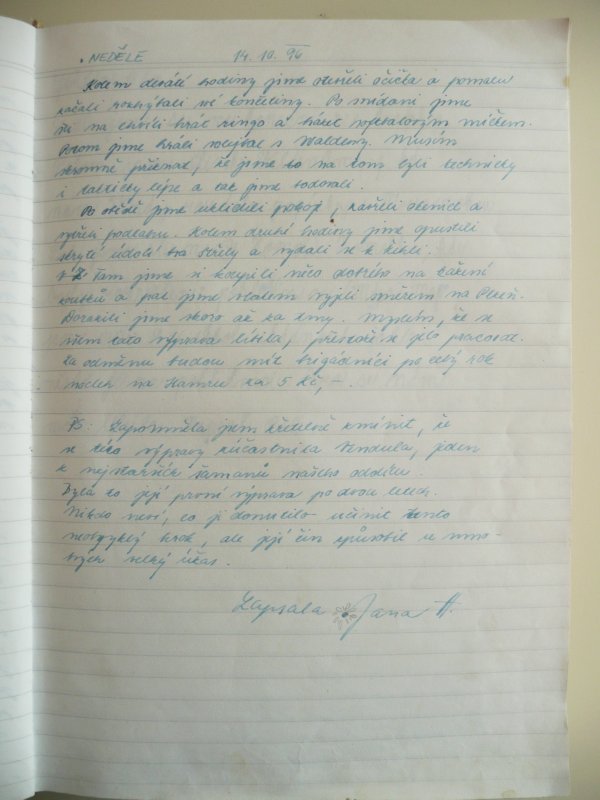 • NEDĚLE 14. 10. 96
Kolem desáté hodiny jsme otevřeli očička a pomalu
začali rozhýbali své končetiny. Po snídani jsme
šli na chvíli hrát ringo a házet softbalovým míčkem.
Potom jsme hráli volejbal s Waldeny. Musím
skromně přiznat, že jsme to na tom byli technicky
i takticky lépe a tak jsme bodovali.
Po obědě jsme uklidili pokoj, zavřeli okenice a
vytřeli podlahu. Kolem druhé hodiny jsme opustili
skryté údolí tra Střely a vydali se k
Tam jsme si koupili něco dobrého na zažení
a pak jsme vlakem vyjeli směrem na Plzeň.
Dorazili jsme skoro až za tmy. Myslím, že se
všem tato výprava líbila, přestože se jelo pracovat.
Za odměnu budou mít brigádníci po celý rok
nocleh na Hamru za 5 Kč,-.
PS: Zapomněla jsem zřetelně zmínit, že
se této výpravy zúčastnila Vendula, jeden
z nejstarších šamanů našeho oddílu.
Byla to její první výprava po dvou letech.
Nikdo neví, co ji donutilo učinit tento
neobvyklý krok, ale její čin způsobil u mno-
hých velký úžas.
Zapsala Jana H.